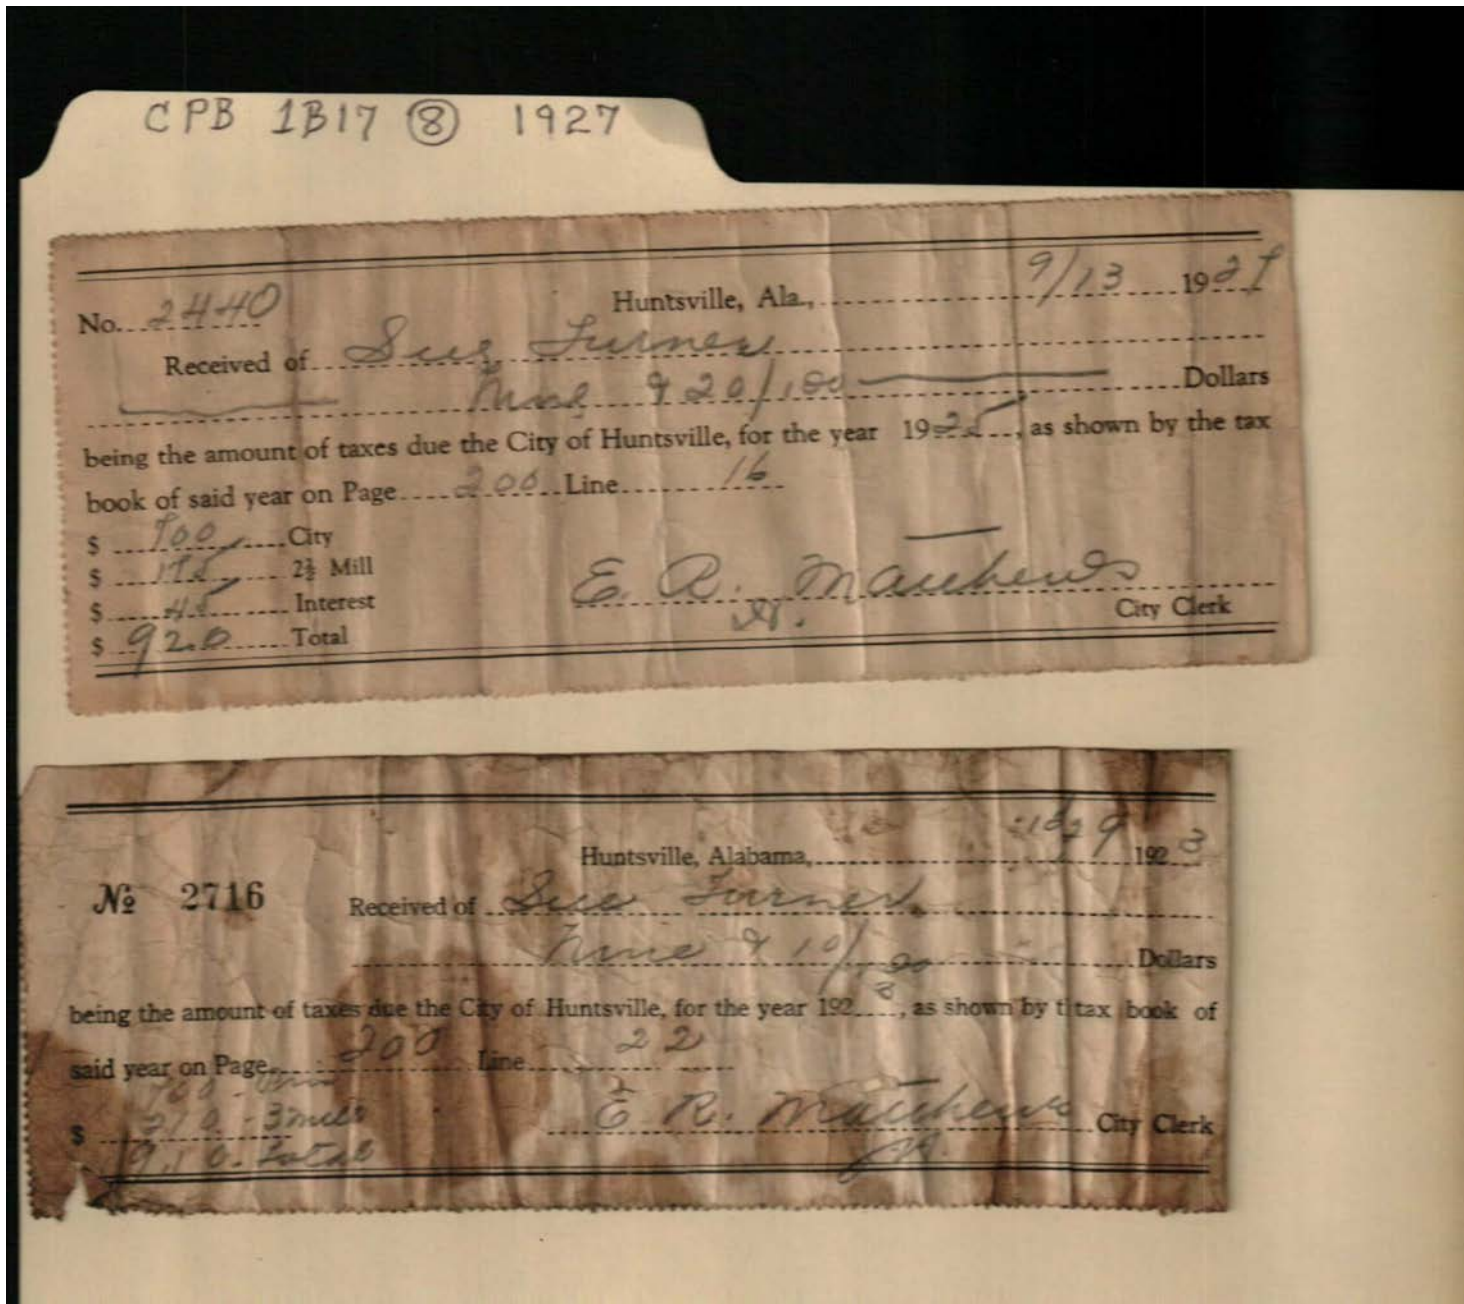 CPB 1B17 (8) 1927
No. 2440 Huntsville, Ala., 9/13 1927
Received of Sue Turner
Nine & 20/100 Dollars
being the amount of taxes due the City of Huntsville, for the year 1925, as shown by the tax
book of said year on Page 200 Line 16
$ 700 City
$ 175 2½ Mill
$ 45 Interest
$ 920 Total
E. R. Matthews
City Clerk
Huntsville, Alabama, 29 1923
№ 2716 Received of Sue Turner
Nine & 10/100 Dollars
being the amount of taxes due the City of Huntsville, for the year 192 , as shown by t tax book of
said year on Page 200 Line 22
700
$ 210 - 3 mill
E R. Matthews City Clerk
9.10 - Total